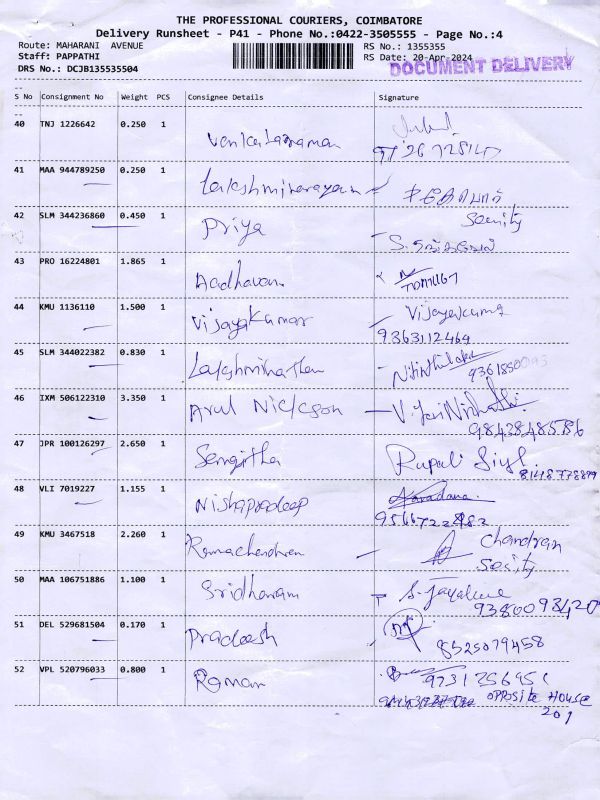 THE PROFESSIONAL COURIERS, COIMBATORE
Delivery Runsheet - P41 - Phone No.:0422-3505555 - Page No.:4
Route: MAHARANI AVENUE RS No.: 1355355
Staff: PAPPATHI RS Date: 20-Apr-2024
DOCUMENT DELIVERY
DRS No.: DCJB135535504
S No Consignment No Weight PCS Consignee Details Signature
40 TNJ 1226642 0.250 1
Venkataraman
41 MAA 944789250 0.250 1
Lakshminarayan
42 SLM 344236860 0.450 1 Secrity
Priya
43 PRO 16224801 1.865 1
Aadhavan
44 KMU 1136110 1.500 1
Vijayakumar Vijayakumar
9363112464
45 SLM 344022382 0.830 1
Lakshminathan
46 IXM 506122310 3.350 1
Arul Nickson
47 JPR 100126297 2.650 1
Sengitha Rupali
48 VLI 7019227 1.155 1
Nishapradeep
49 KMU 3467518 2.260 1
Ramachandran Chandran
50 MAA 106751886 1.100 1
Sridharan S. Jayakumar
9380098420
51 DEL 529681504 0.170 1
Pradeesh 8525079458
52 VPL 520796033 0.800 1
Raman
opposite House
201